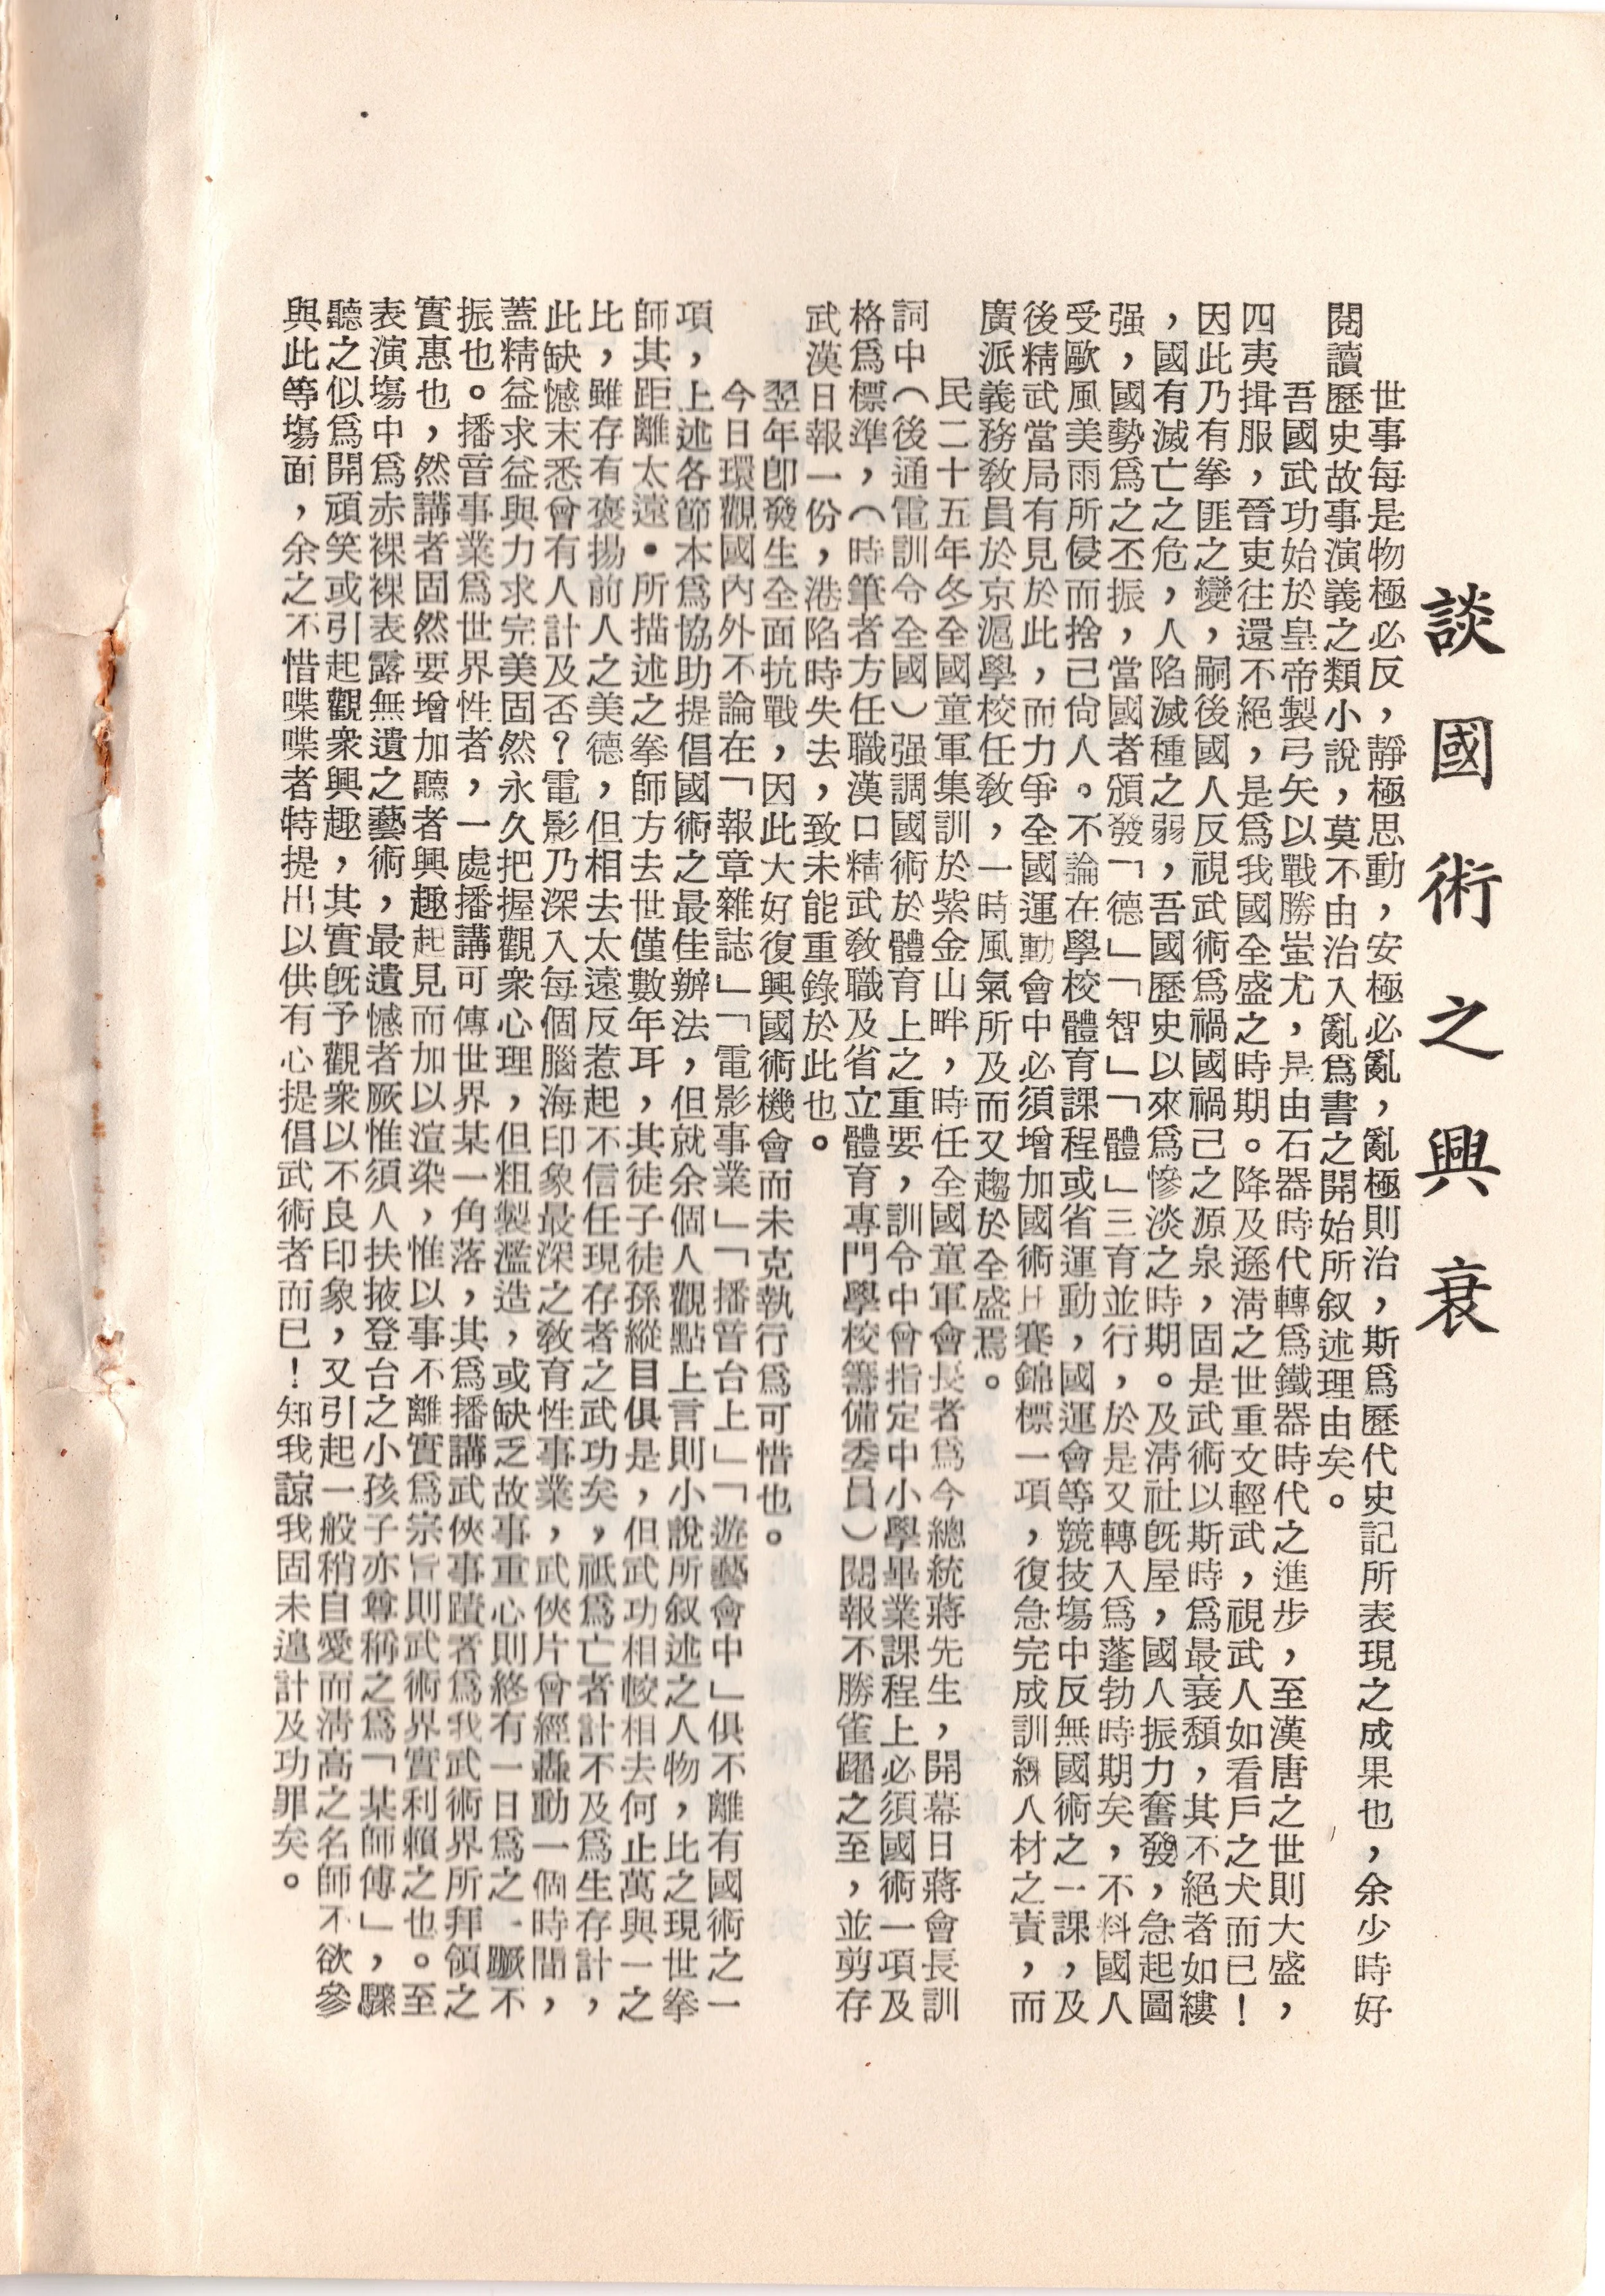 談國術之興衰
世事每是物極必反，靜極思動，安極必亂，亂極則治，斯爲歷代史記所表現之成果也，余少時好
閱讀歷史故事演義之類小說，莫不由治入亂爲書之開始所叙述理由矣。
吾國武功始於皇帝製弓矢以戰勝蚩尤，是由石器時代轉爲鐵器時代之進步，至漢唐之世則大盛，
四夷揖服，晉吏往還不絕，是爲我國全盛之時期。降及遜淸之世重文輕武，視武人如看戶之犬而已！
因此乃有拳匪之變，嗣後國人反視武術爲禍國禍己之源泉，固是武術以斯時爲最衰頹，其不絕者如縷
，國有滅亡之危，人陷滅種之弱，吾國歷史以來爲慘淡之時期。及淸社旣屋，國人振力奮發，急起圖
强，國勢爲之丕振，當國者頒發「德」「智」「體」三育並行，於是又轉入爲蓬勃時期矣，不料國人
受歐風美雨所侵而捨己尙人。不論在學校體育課程或省運動，國運會等競技塲中反無國術之一課，及
後精武當局有見於此，而力爭全國運動會中必須增加國術比賽錦標一項，復急完成訓練人材之責，而
廣派義務教員於京滬學校任教，一時風氣所及而又趨於全盛焉。
民二十五年冬全國童軍集訓於紫金山畔，時任全國童軍會長者爲今總統蔣先生，開幕日蔣會長訓
詞中（後通電訓令全國）强調國術於體育上之重要，訓令中曾指定中小學畢業課程上必須國術一項及
格爲標準，（時筆者方任職漢口精武教職及省立體育專門學校籌備委員）閱報不勝雀躍之至，並剪存
武漢日報一份，港陷時失去，致未能重錄於此也。
翌年卽發生全面抗戰，因此大好復興國術機會而未克執行爲可惜也。
今日環觀國內外不論在「報章雜誌」「電影事業」「播音台上」「遊藝會中」俱不離有國術之一
項，上述各節本爲協助提倡國術之最佳辦法，但就余個人觀點上言則小說所叙述之人物，比之現世拳
師其距離太遠・所描述之拳師方去世僅數年耳，其徒子徒孫縱目俱是，但武功相較相去何止萬與一之
比，雖存有褒揚前人之美德，但相去太遠反惹起不信任現存者之武功矣，祇爲亡者計不及爲生存計，
此缺憾末悉曾有人計及否？電影乃深入每個腦海印象最深之教育性事業，武俠片會經轟動一個時間，
蓋精益求益與力求完美固然永久把握觀衆心理，但粗製濫造，或缺乏故事重心則終有一日爲之一蹶不
振也。播音事業爲世界性者，一處播講可傳世界某一角落，其爲播講武俠事蹟者爲我武術界所拜領之
實惠也，然講者固然要增加聽者興趣起見而加以渲染，惟以事不離實爲宗旨則武術界實利賴之也。至
表演塲中爲赤裸裸表露無遺之藝術，最遺憾者厥惟須人扶掖登台之小孩子亦尊稱之爲「某師傅」，驟
聽之似爲開頑笑或引起觀衆興趣，其實旣予觀衆以不良印象，又引起一般稍自愛而淸高之名師不欲參
與此等塲面，余之不惜喋喋者特提出以供有心提倡武術者而已！知我諒我固未遑計及功罪矣。